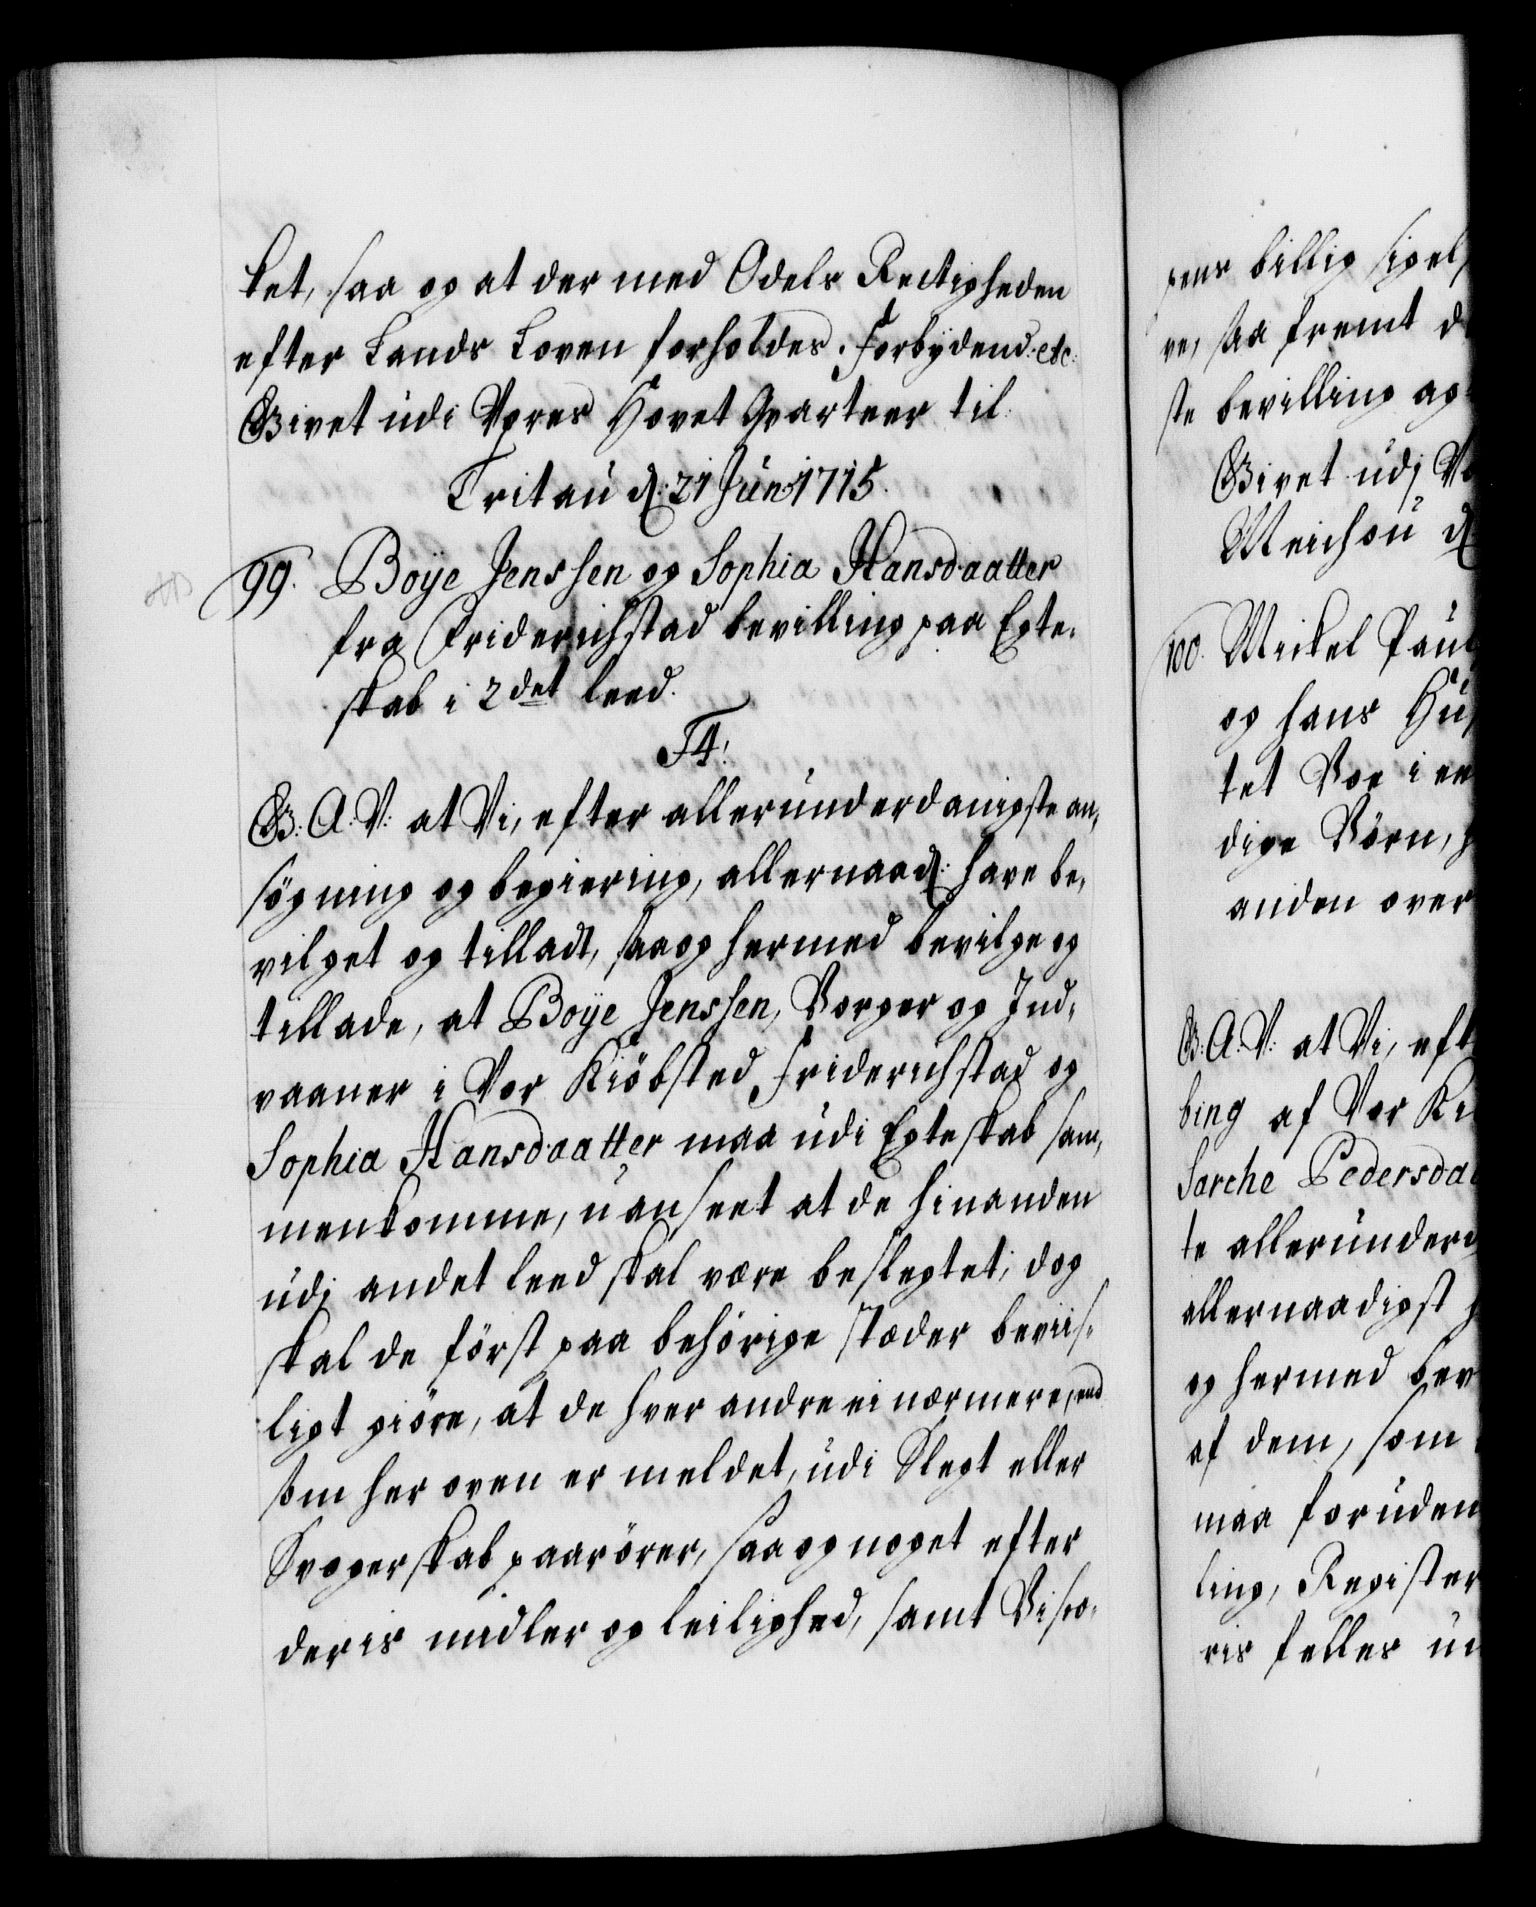 ket, saa og at der med Odels Rectigheden
efter Lands Loven forholdes. Forbydend: etc:
Givet udi Vores Hovet Qvarteer til
Tritau d: 21 Jun: 1715.
99. Boÿe Jenssen og Sophia Hansdaatter
fra Friderichstad bevilling paa Egte-
skab i 2det leed.
F4!
G: A: V: at Vi, efter allerunderdanigste an-
søgning og begiering, allernaad: have be-
vilget og tilladt, saa og hermed bevilge og
tillade, at Boÿe Jenssen, Borger og Ind-
vaaner i Vor Kiöbsted Friderichstad og
Sophia Hansdaatter maa udi Egteskab sam-
menkomme, uanseet at de hinanden
udj andet leed skal være beslegtet; dog
skal de først paa behörige stæder beviis-
ligt giöre, at de hver andre ei nærmere, end
som her oven er meldet, udi Slegt eller
Svogerskab paarörer, saa og noget efter
deris midler og leilighed, samt Visco-
gens billig sigel
ve, saa fremt d
ste bevilling ag
Givet udj Vo
Meichou d:
100. Mickel Paul
og hans Hus
tet Voe i ee
dige Börn, h
anden over
G: A: V: at Vi, eft
bing af Vor Ki
Sarche Pedersda
te allerunderd
allernaadigst h
og hermed bev
af dem, som
maa foruden
ling, Register
ris felles u